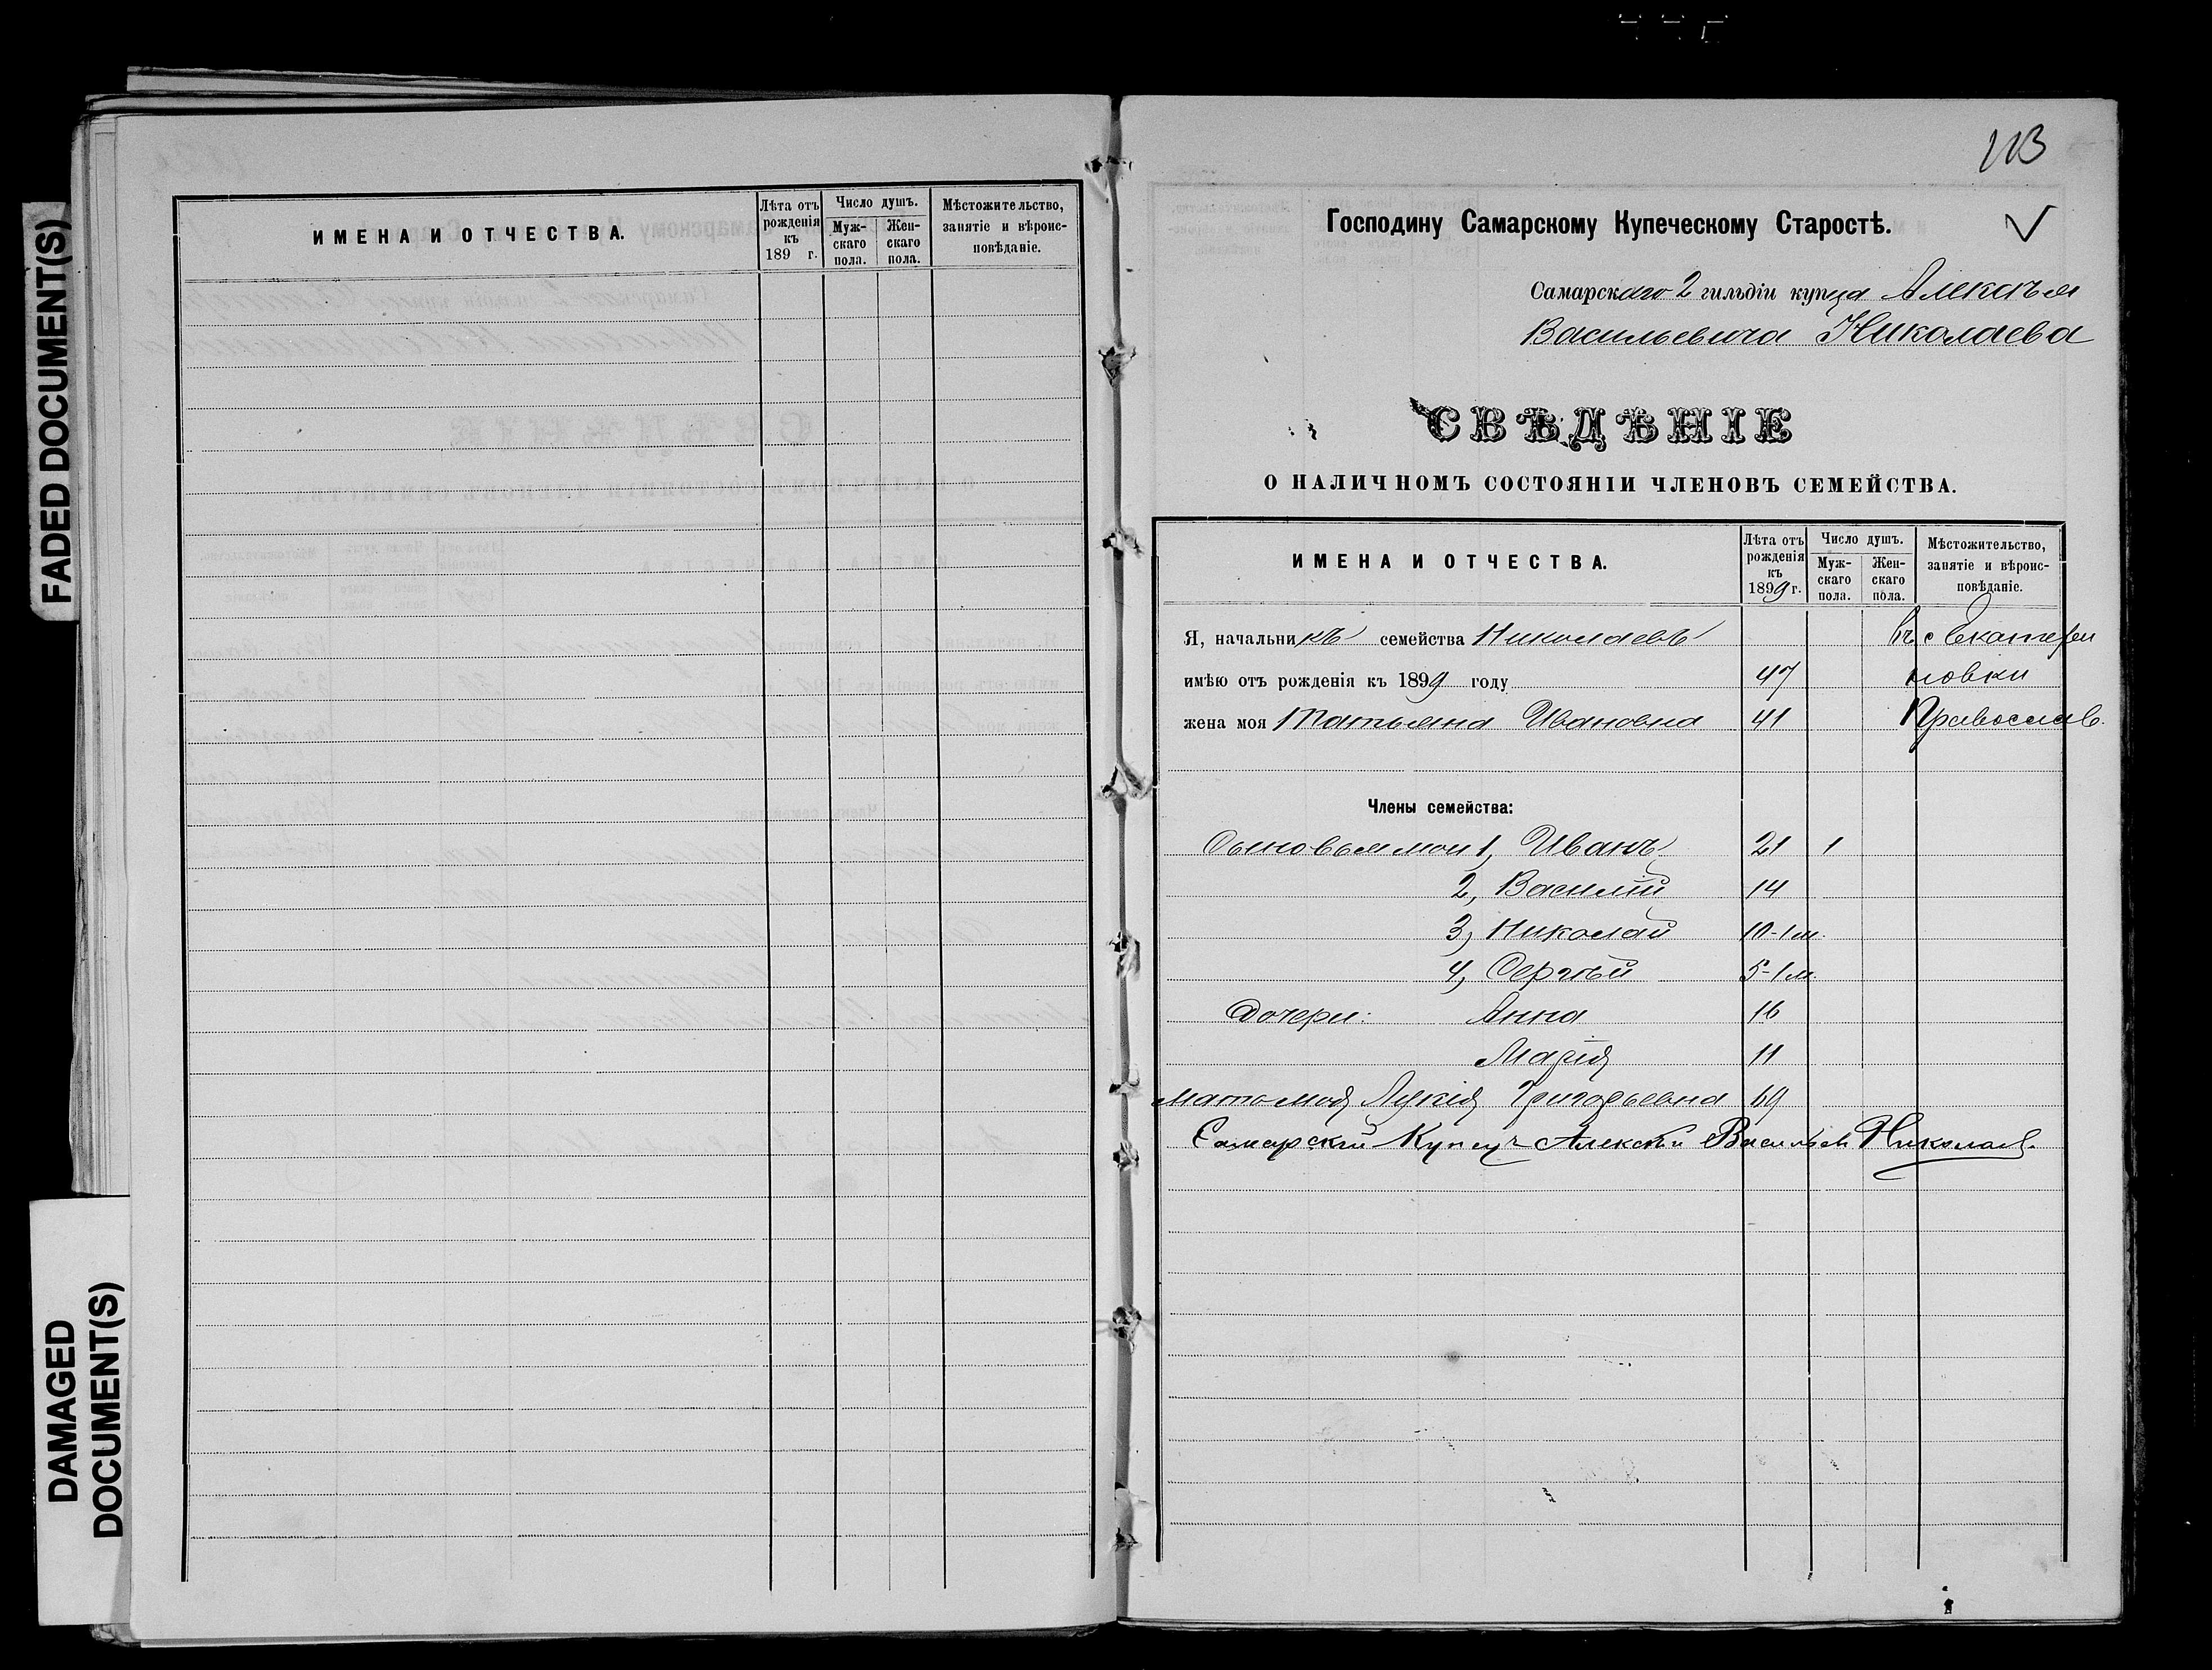 FADED DOCUMENT(S)
DAMAGED
DOCUMENT(S)
ИМЕНА И ОТЧЕСТВА.
Лѣта отъ
рожденія
къ
189 г.
Число душъ.
Муж-
скаго
пола.
Жен-
скаго
пола.
Мѣстожительство,
занятіе и вѣроис-
повѣданіе.
113
Господину Самарскому Купеческому Старостѣ.
Самарскаго 2 гильдіи купца Алексѣя
Васильевича Николаева
СВѢДѢНІЕ
О НАЛИЧНОМЪ СОСТОЯНІИ ЧЛЕНОВЪ СЕМЕЙСТВА.
ИМЕНА И ОТЧЕСТВА.
Лѣта отъ
рожденія
къ
1899 г.
Число душъ.
Муж-
скаго
пола.
Жен-
скаго
пола.
Мѣстожительство,
занятіе и вѣроис-
повѣданіе.
Я, начальникъ семейства Николаевъ въ с Екатери
имѣю отъ рожденія къ 1899 году 47 новки
жена моя Татьяна Ивановна 41 Православ.
Члены семейства:
Сыновья мои 1, Иванъ 21 1
2, Василій 14
3, Николай 10-1 м.
4, Сергѣй 5-1 м.
Дочери: Анна 16
Марія 11
мать моя Лукія Григорьевна 69
Самарскій Купецъ Алексѣй Васильев Николаев